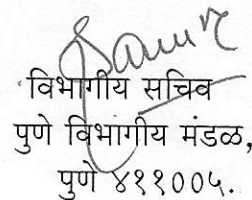 विभागीय सचिव
पुणे विभागीय मंडळ,
पुणे ४११००५.